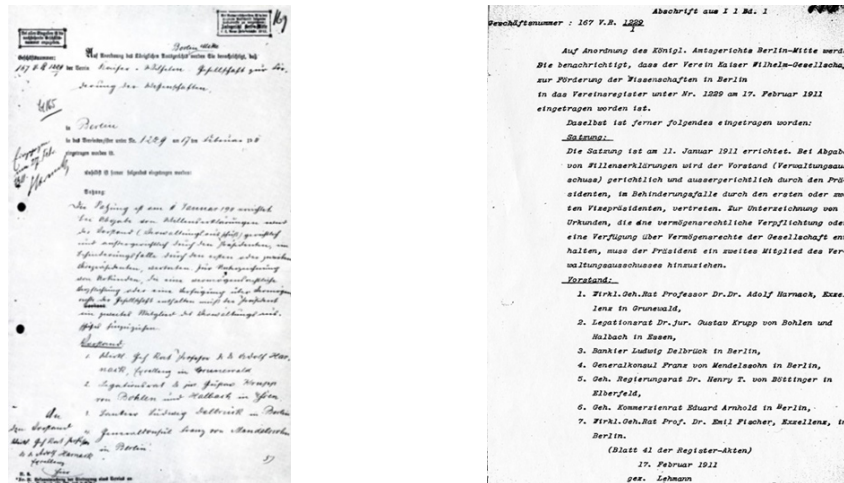 169
Geschäftsnummer:
Auf Anordnung des Königlichen Amtsgerichts werden Sie benachrichtigt, daß
Berlin-Mitte
167 V.R. 1229 der Verein Kaiser-Wilhelm-Gesellschaft zur För-
derung der Wissenschaften
in Berlin
in das Vereinsregister unter Nr. 1229 am 17ten Februar
eingetragen worden ist.
Daselbst ist ferner folgendes eingetragen worden:
Satzung:
Die Satzung ist am Januar errichtet
Bei Abgabe von Willenserklärungen wird
der Vorstand (Verwaltungsausschuß) gerichtlich
und aussergerichtlich durch den Präsidenten, im
Behinderungsfalle durch den ersten oder zweiten
Vizepräsidenten, vertreten. Zur Unterzeichnung
von Urkunden, die eine vermögensrechtliche
Verpflichtung oder eine Verfügung über Vermögens-
rechte der Gesellschaft enthalten muß der Präsident
ein zweites Mitglied des Verwaltungsaus-
schusses hinzuziehen.
Vorstand
1. Wirkl. Geh. Rat Professor Adolf Har-
nack, Exzellenz in Grunewald
2. Legationsrat Dr. jur. Gustav Krupp
von Bohlen und Halbach in Essen,
3. Bankier Ludwig Delbrück in Berlin
4. Generalkonsul Franz von Mendelssohn
in Berlin
An
den Vorstand
Wirkl. Geh. Rat Professor
Adolf Harnack
Exzellenz
hier
Abschrift aus I 1 Bd. 1
Geschäftsnummer : 167 V.R. 1229
Auf Anordnung des Königl. Amtsgerichts Berlin-Mitte werd
Sie benachrichtigt, dass der Verein Kaiser Wilhelm-Gesellscha
zur Förderung der Wissenschaften in Berlin
in das Vereinsregister unter Nr. 1229 am 17. Februar 1911
eingetragen worden ist.
Daselbst ist ferner folgendes eingetragen worden:
Satzung:
Die Satzung ist am 11. Januar 1911 errichtet. Bei Abgab
von Willenserklärungen wird der Vorstand (Verwaltungsau
schuss) gerichtlich und aussergerichtlich durch den Prä
sidenten, im Behinderungsfalle durch den ersten oder zwe
ten Vizepräsidenten, vertreten. Zur Unterzeichnung von
Urkunden, die eine vermögensrechtliche Verpflichtung ode
eine Verfügung über Vermögensrechte der Gesellschaft en
halten, muss der Präsident ein zweites Mitglied des Ver
waltungsausschusses hinzuziehen.
Vorstand:
1. Wirkl.Geh.Rat Professor Dr.Dr. Adolf Harnack, Exze
lenz in Grunewald,
2. Legationsrat Dr.jur. Gustav Krupp von Bohlen und
Halbach in Essen,
3. Bankier Ludwig Delbrück in Berlin,
4. Generalkonsul Franz von Mendelssohn in Berlin,
5. Geh. Regierungsrat Dr. Henry T. von Böttinger in
Elberfeld,
6. Geh. Kommerzienrat Eduard Arnhold in Berlin,
7. Wirkl.Geh.Rat Prof. Dr. Emil Fischer, Exzellenz, i
Berlin.
(Blatt 41 der Register-Akten)
17. Februar 1911
gez. Lehmann